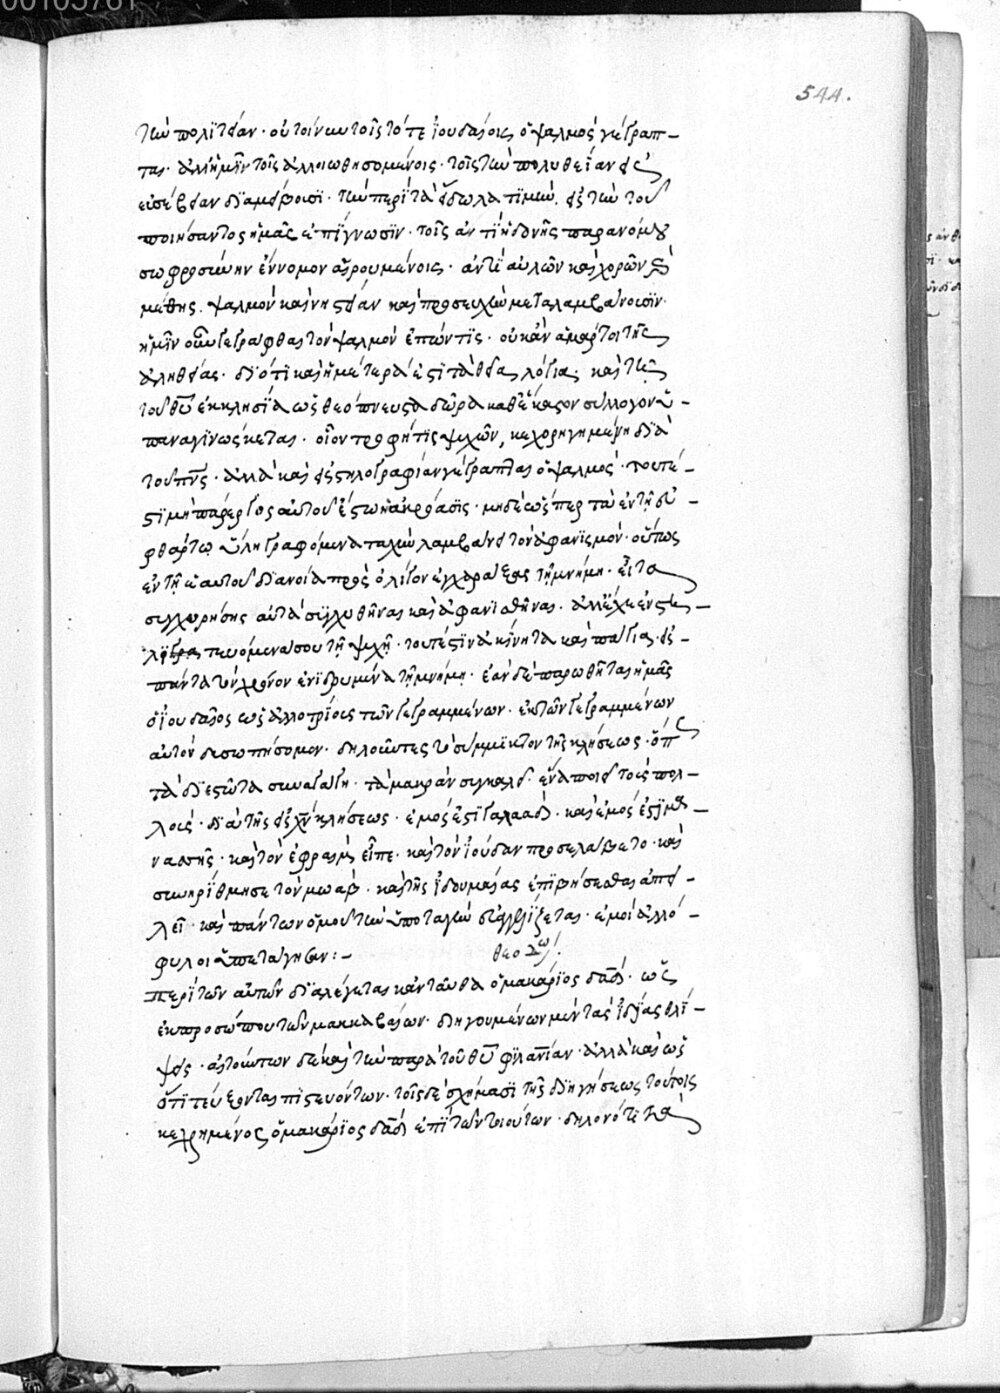 544.
τὴν πολιτείαν· οὐ τοίνυν τοῖς τότε ἰουδαίοις ὁ ψαλμὸς γέγραπ-
ται· ἀλλ' ἡμῖν τοῖς ἀλλοιωθησομένοις· τοῖς τὴν πολυθεΐαν εἰς
εὐσέβειαν διαμείβουσι· τὴν περὶ τὰ εἴδωλα τιμὴν· εἰς τὴν τοῦ
ποιήσαντος ἡμᾶς ἐπίγνωσιν· τοῖς ἀντὶ ἡδονῆς παρανόμου
σωφροσύνην ἔννομον αἱρουμένοις· ἀντὶ αὐλῶν καὶ χορῶν καὶ
μέθης· ψαλμὸν καὶ νηστείαν καὶ προσευχὴν μεταλαμβάνουσιν·
ἡμῖν οὖν γεγράφθαι τὸν ψαλμὸν εἰπών τις· οὐκ ἂν ἁμάρτοι τῆς
ἀληθείας· διότι καὶ ἡμέτερά ἐστι τὰ θεῖα λόγια· καὶ τῇ
τοῦ θυ ἐκκλησία ὡς θεόπνευστα δῶρα καθ' ἕκαστον σύλλογον ὑ-
παναγινώσκεται· οἷον τροφή τις ψυχῶν, κεχορηγημένη διὰ
τοῦ πνς· ἀλλὰ καὶ εἰς στηλογραφίαν γέγραπται ὁ ψαλμὸς· τουτέ-
στι μὴ πάρεργος αὐτοῦ ἔστω ἡ ἀκρόασις· μηδὲ ὥσπερ τὰ ἐν τῇ εὐ-
φθάρτω ὕλη γραφόμενα ταχὺν λαμβάνει τὸν ἀφανισμόν· οὕτως
ἐν τῇ ἑαυτοῦ διανοία πρὸς ὀλίγον ἐγχαράξας τῇ μνήμη· εἶτα
συγχωρήσης αὐτὰ συγχυθῆναι καὶ ἀφανισθῆναι· ἀλλ' ἔχε ἐνστη-
λογραφούμενα σου τῇ ψυχῇ· τουτέστιν ἀκίνητα καὶ πάγια εἰς
πάντα τὸν χρόνον ἐνιδρυμένα τῇ μνήμη· ἐὰν δὲ παρωθῆται ἡμᾶς
ὁ ἰουδαῖος ὡς ἀλλοτρίους τῶν γεγραμμένων· ἐκ τῶν γεγραμμένων
αὐτὸν δυσωπήσομεν· δηλοῦντες τὸ σύμμικτον τῆς κλήσεως· ὅπως
τὰ διεστῶτα συναγάγη· τὰ μακρὰν συγκαλεῖ· ἓν ἀποιεῖ τοὺς πολ-
λοὺς· διὰ τῆς εἰς χν κλήσεως· ἐμός ἐστι γαλαάδ· καὶ ἐμός ἐστι μα-
νασσῆς· καὶ τὸν ἐφραΐμ εἶπε· καὶ τὸν ἰούδαν προσελάβετο· καὶ
συνηρίθμησε τὸν μωάβ· καὶ τῆς ἰδουμαίας ἐπιβήσεσθαι ἀπει-
λεῖ· καὶ πάντων ὁμοῦ τὴν ὑποταγὴν εὐαγγελίζεται· ἐμοὶ ἀλλό-
φυλοι ὑπετάγησαν:-
θεοδω
περὶ τῶν αὐτῶν διαλέγεται κἀνταῦθα ὁ μακάριος δαδ· ὡς
ἐκ προσώπου τῶν μακκαβαίων· διηγουμένων μὲν τὰς ἰδίας θλί-
ψεις· αἰτούντων δὲ καὶ τὴν παρὰ τοῦ θυ φιλανίαν· ἀλλὰ καὶ ὡς
ὅτι τεύξονται πιστευόντων· τοῖς δὲ σχήμασι τῆς διηγήσεως τούτοις
κεχρημένος ὁ μακάριος δαδ ἐπὶ τῶν τοιούτων· δηλονότι